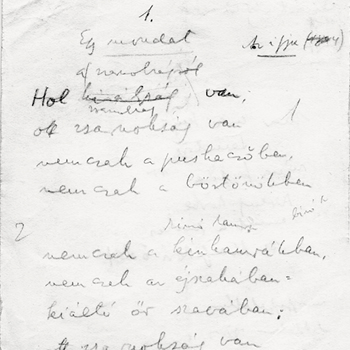 1.
Egy mondat
a zsarnokságról
Hol zsarnokság van,
ott zsarnokság van
1
nemcsak a puskacsőben,
nemcsak a börtönökben
2
nemcsak a kínkamrákban,
nemcsak az éjszakában
kiáltó őr szavában;
ott zsarnokság van